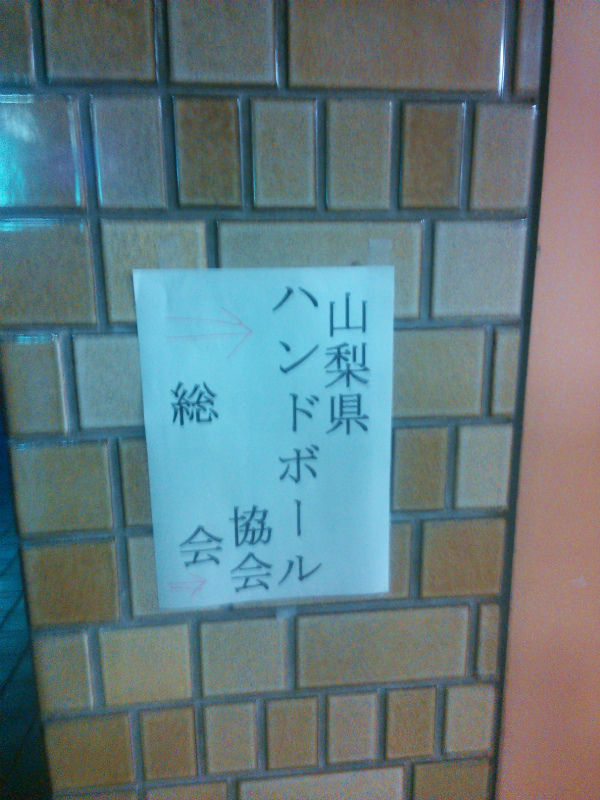 山梨県
ハンドボール
協会
総会